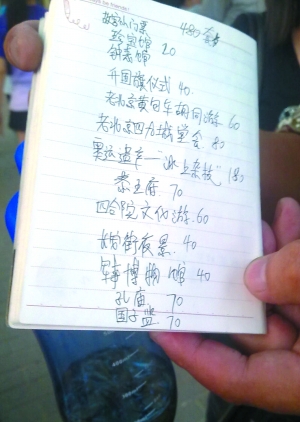 故宫外门票 480 套
珍宝馆 20
钟表馆
升国旗仪式 40.
老北京黄包车胡同游. 60
老北京四九城堂会. 80
奥运遗产—"冰上杂技" 180
恭王府. 70
四合院文化游. 60
长安街夜景. 40
军事博物馆 40
孔庙. 70
国子监. 70